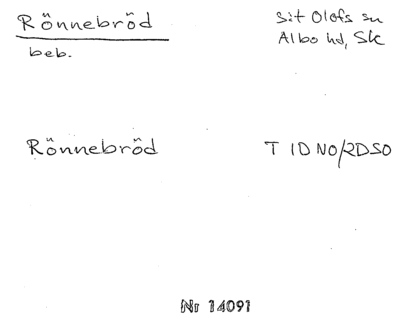 Rönnebröd
S:t Olofs sn
beb.
Albo hd, Sk
Rönnebröd
T 1D NO/2D SO
Nr 14091